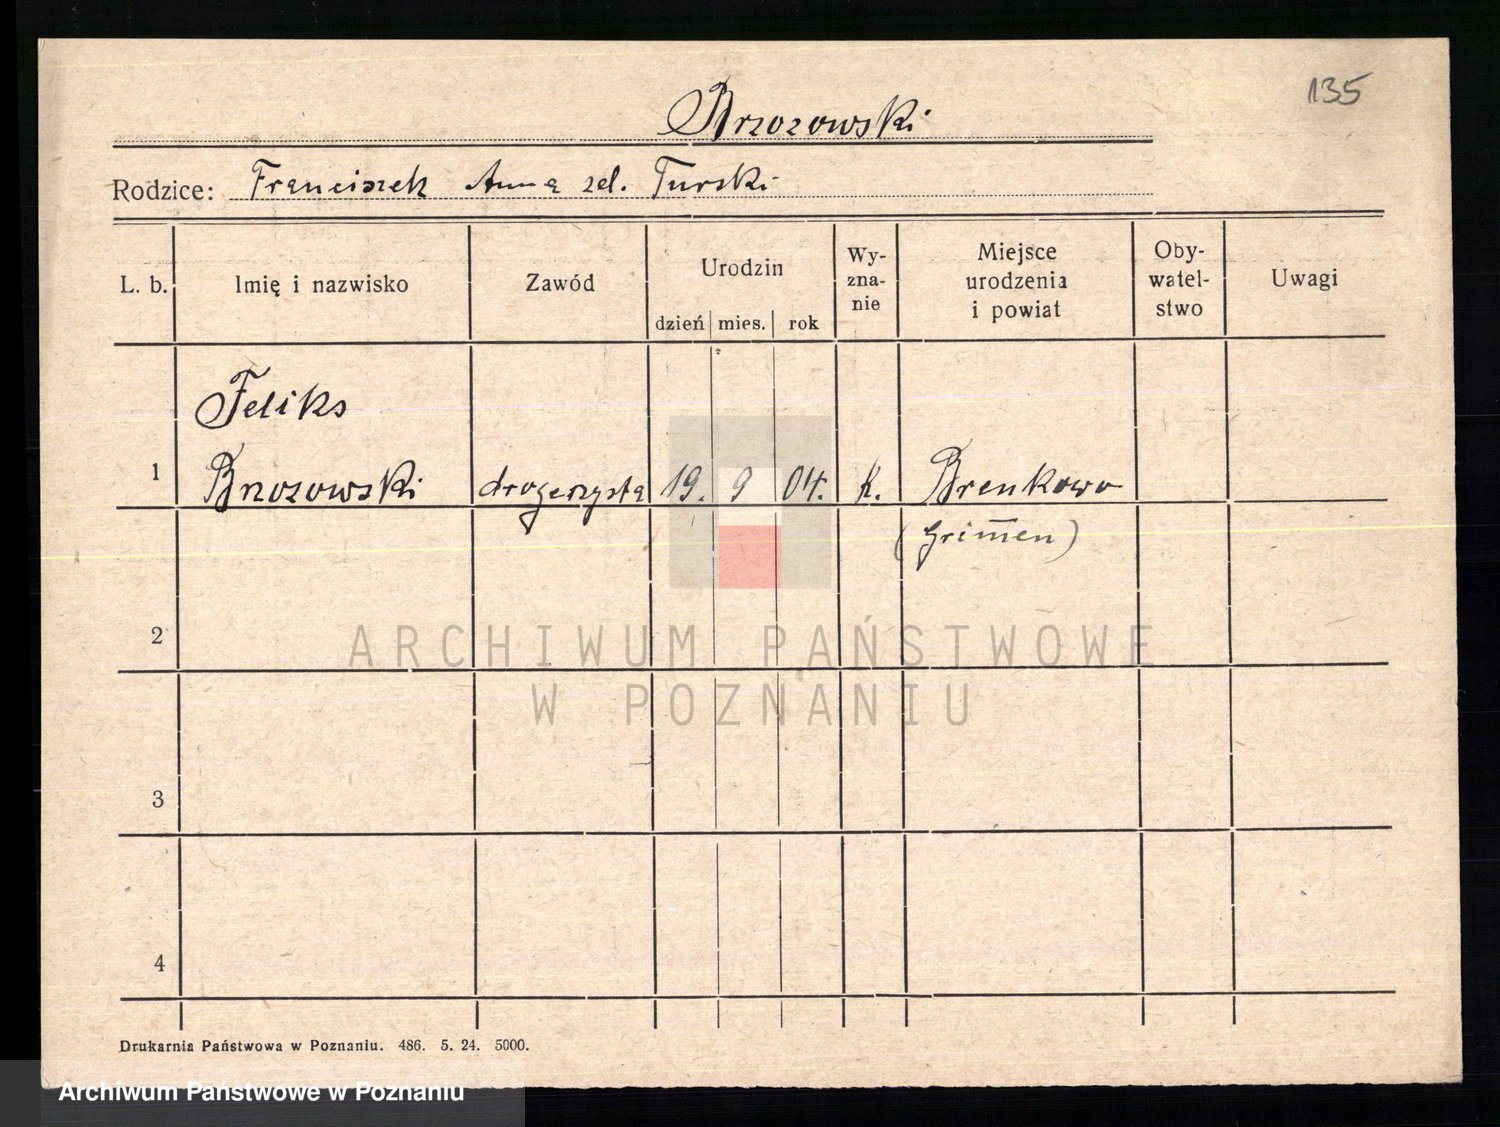 135
Brzozowski
Rodzice: Franciszek Anna zd. Turski
L. b.
Imię i nazwisko
Zawód
Urodzin
dzień
mies.
rok
Wy-
zna-
nie
Miejsce
urodzenia
i powiat
Oby-
watel-
stwo
Uwagi
Feliks
1 Brzozowski drogerzysta 19. 9 04. k. Brenkowo
(Grimmen)
2
3
4
ARCHIWUM PAŃSTWOWE
W POZNANIU
Drukarnia Państwowa w Poznaniu. 486. 5. 24. 5000.
Archiwum Państwowe w Poznaniu